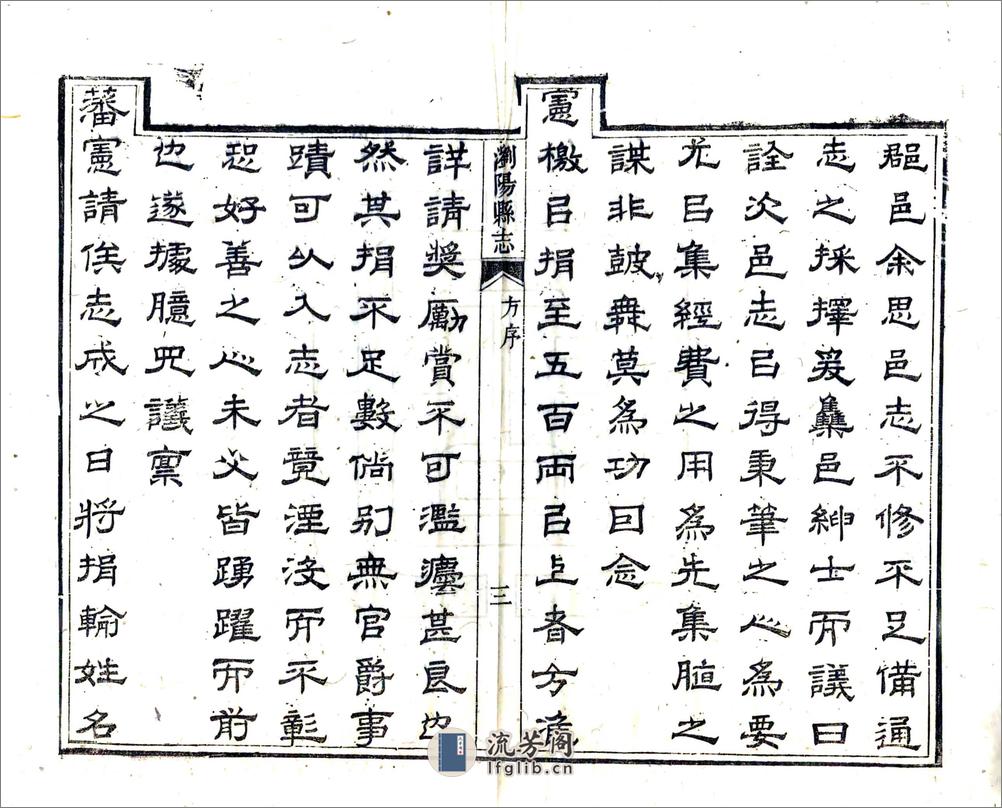 郡邑余思邑志不修不足備通
志之採擇爰集邑紳士而議曰
詮次邑志㠯得秉筆之心爲要
尤㠯集經費之用爲先集腋之
謀非鼓舞莫爲功因念
憲檄㠯捐至五百兩㠯上者方
瀏陽縣志
方序
三
詳請獎勵賞不可濫灋甚良也
然其捐不足數倘別無官爵事
蹟可以入志者竟湮沒而不彰
恐好善之心未必皆踴躍而前
也遂據臆見議稟
藩憲請俟志成之日將捐輸姓名
流芳阁
lfglib.cn